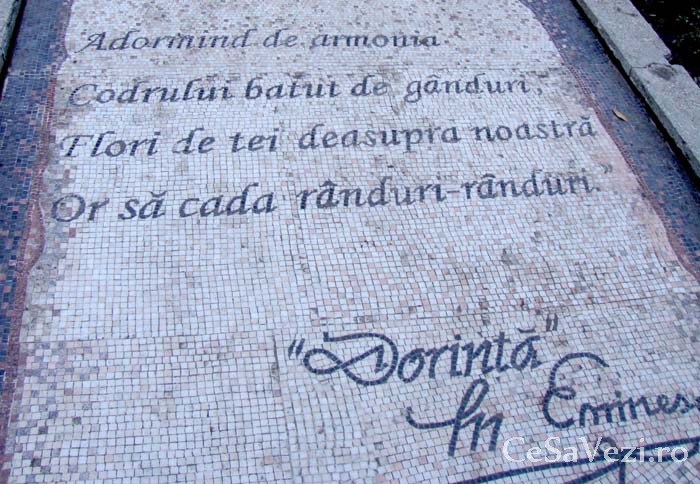 Adormind de armonia
Codrului batut de gânduri,
Flori de tei deasupra noastră
Or să cada rânduri-rânduri."
"Dorință"
Emines
CeSaVezi.ro